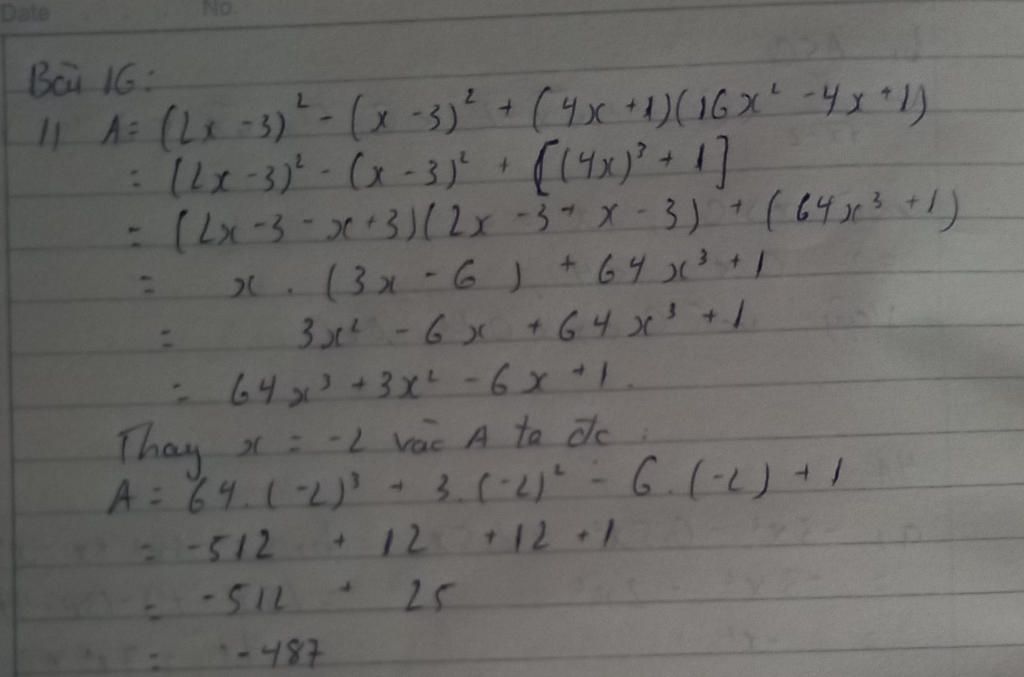 Date No.
Bài 16:
1) A = (2x - 3)² - (x - 3)² + (4x + 1)(16x² - 4x + 1)
= (2x - 3)² - (x - 3)² + [(4x)³ + 1]
= (2x - 3 - x + 3)(2x - 3 + x - 3) + (64x³ + 1)
= x . (3x - 6) + 64x³ + 1
= 3x² - 6x + 64x³ + 1
= 64x³ + 3x² - 6x + 1.
Thay x = -2 vào A ta đc :
A = 64 . (-2)³ + 3 . (-2)² - 6 . (-2) + 1
= -512 + 12 + 12 + 1
= -512 + 25
= -487